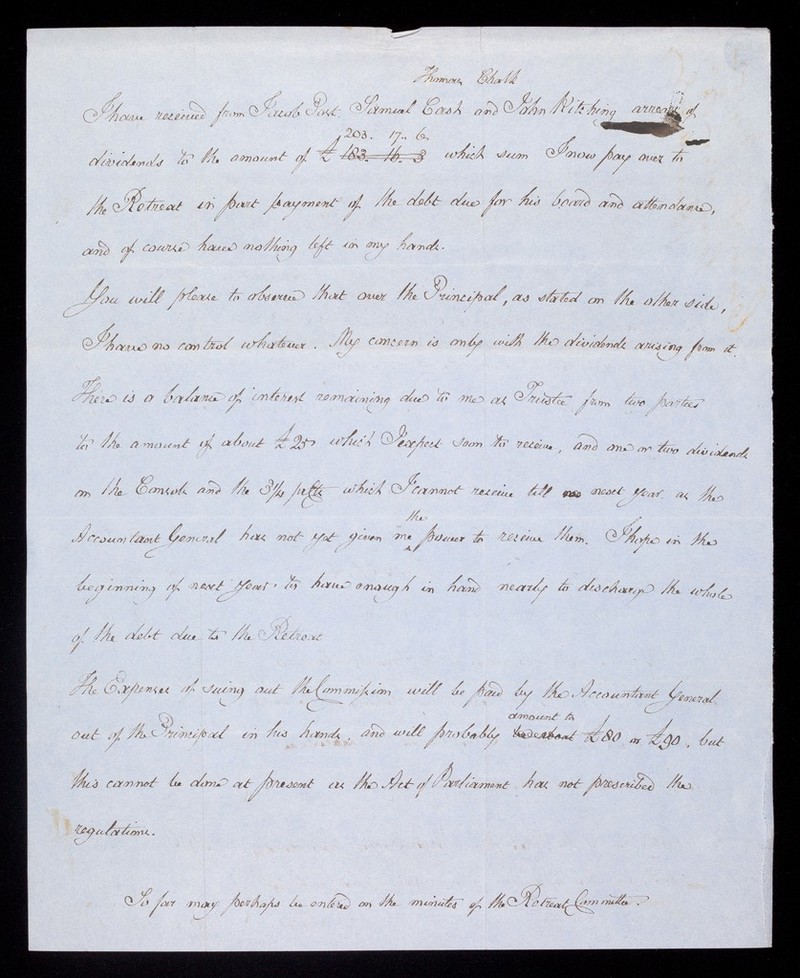 Thomas Chalk
I have received from Jacob Post, Samuel Cash and John Kitching arrears of
203. 17.. 6.
dividends to the amount of £ 183. 16. 3 which sum I now pay over to
the Retreat in part payment of the debt due for his board and attendance,
and of course have nothing left in my hands.
You will please to observe that over the Principal, as stated on the other side,
I have no control whatever. My concern is only with the dividends arising from it.
There is a balance of interest remaining due to me as Trustee from two parties
to the amount of about £25 which I expect soon to receive, and one or two dividends
on the Consols and the 3½ pr Cts which I cannot receive till next year as the
the
Accountant General has not yet given me power to receive them. I hope in the
beginning of next year to have enough in hand nearly to discharge the whole
of the debt due to the Retreat
The Expenses of suing out the Commission will be paid by the Accountant General
amount to
out of the Principal in his hands, and will probably be about £80 or £90, but
this cannot be done at present as the Act of Parliament has not prescribed the
regulations.
So far may perhaps be entered on the minutes of the Retreat Committee.